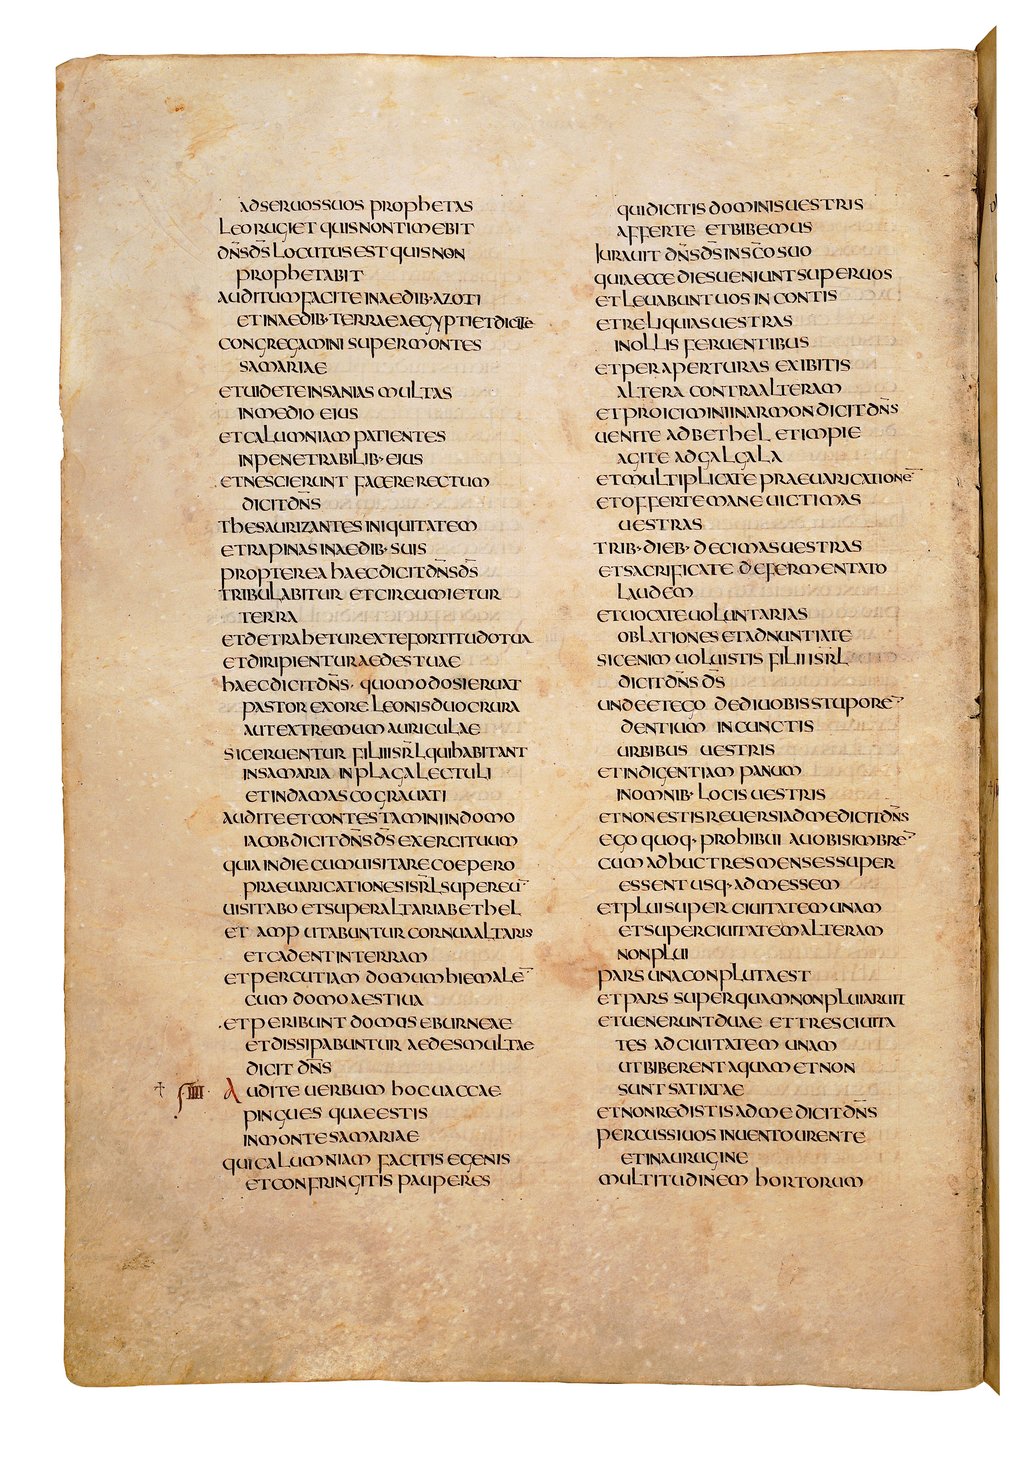 adseruossuos prophetas
Leo rugiet quis non timebit
dn̄sds̄ locutus est quis non
prophetabit
auditum facite in aedib· azoti
et in aedib· terrae aegypti et dicite
congregamini super montes
samariae
et uidete insanias multas
in medio eius
et calumniam patientes
in penetrabilib· eius
et nescierunt facere rectum
dicit dn̄s
thesaurizantes iniquitatem
et rapinas in aedib· suis
propterea haec dicit dn̄s ds̄
tribulabitur et circumietur
terra
et detrahetur ex te fortitudo tua
et diripientur aedes tuae
haec dicit dn̄s· quomodo si eruat
pastor ex ore leonis duo crura
aut extremum auriculae
sic eruentur filii isrl̄ qui habitant
in samaria in plaga lectuli
et in damasco grauati
audite et contestamini in domo
iacob dicit dn̄s ds̄ exercituum
quia in die cum uisitare coepero
praeuaricationes isrl̄ super eū
uisitabo et super altaria bethel
et amputabuntur cornua altaris
et cadent in terram
et percutiam domum hiemalē
cum domo aestiua
et peribunt domus eburneae
et dissipabuntur aedes multae
dicit dn̄s
† IIII Audite uerbum hoc uaccae
pingues quae estis
in monte samariae
qui calumniam facitis egenis
et confringitis pauperes
qui dicitis dominis uestris
afferte et bibemus
Iurauit dn̄s ds̄ in sc̄o suo
quia ecce dies uenient super uos
et leuabunt uos in contis
et reliquias uestras
in ollis feruentibus
et per aperturas exibitis
altera contra alteram
et proiciemini in armon dicit dn̄s
uenite ad bethel et impie
agite ad galgala
et multiplicate praeuaricationē
et offerte mane uictimas
uestras
trib· dieb· decimas uestras
et sacrificate de fermentato
laudem
et uocate uoluntarias
oblationes et adnuntiate
sic enim uoluistis filii isrl̄
dicit dn̄s ds̄
unde et ego dedi uobis stuporē
dentium in cunctis
urbibus uestris
et indigentiam panum
in omnib· locis uestris
et non estis reuersi ad me dicit dn̄s
ego quoq· prohibui a uobis imbrē
cum adhuc tres menses super
essent usq· ad messem
et plui super ciuitatem unam
et super ciuitatem alteram
non plui
pars una conpluta est
et pars super quam non plui aruit
et uenerunt duae et tres ciuita
tes ad ciuitatem unam
ut biberent aquam et non
sunt satiatae
et non redistis ad me dicit dn̄s
percussi uos in uento urente
et in aurugine
multitudinem hortorum